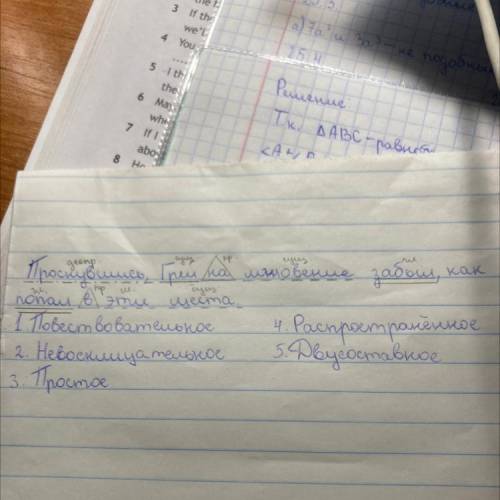 3 If th
we'l
4 You
5 I th
the
6 Ma
wh
7 If I
abo
8 He
а) 7а³ и 3а³ - не подобны
Решение
Т.к. ΔABC - равност
деепр. сущ пр сущ гл.
Проснувшись, Грей на мгновение забыл, как
гл. пр м. сущ
попал в эти места.
1. Повествовательное
2. Невосклицательное
3. Простое
4. Распространённое
5. Двусоставное